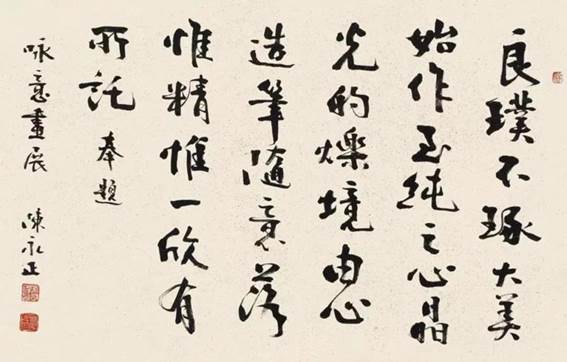 良璞不琢大美
始作至純之心晶
光的爍境由心
造筆隨意落
惟精惟一欣有
所託 奉題
咏意畫展 陳永正